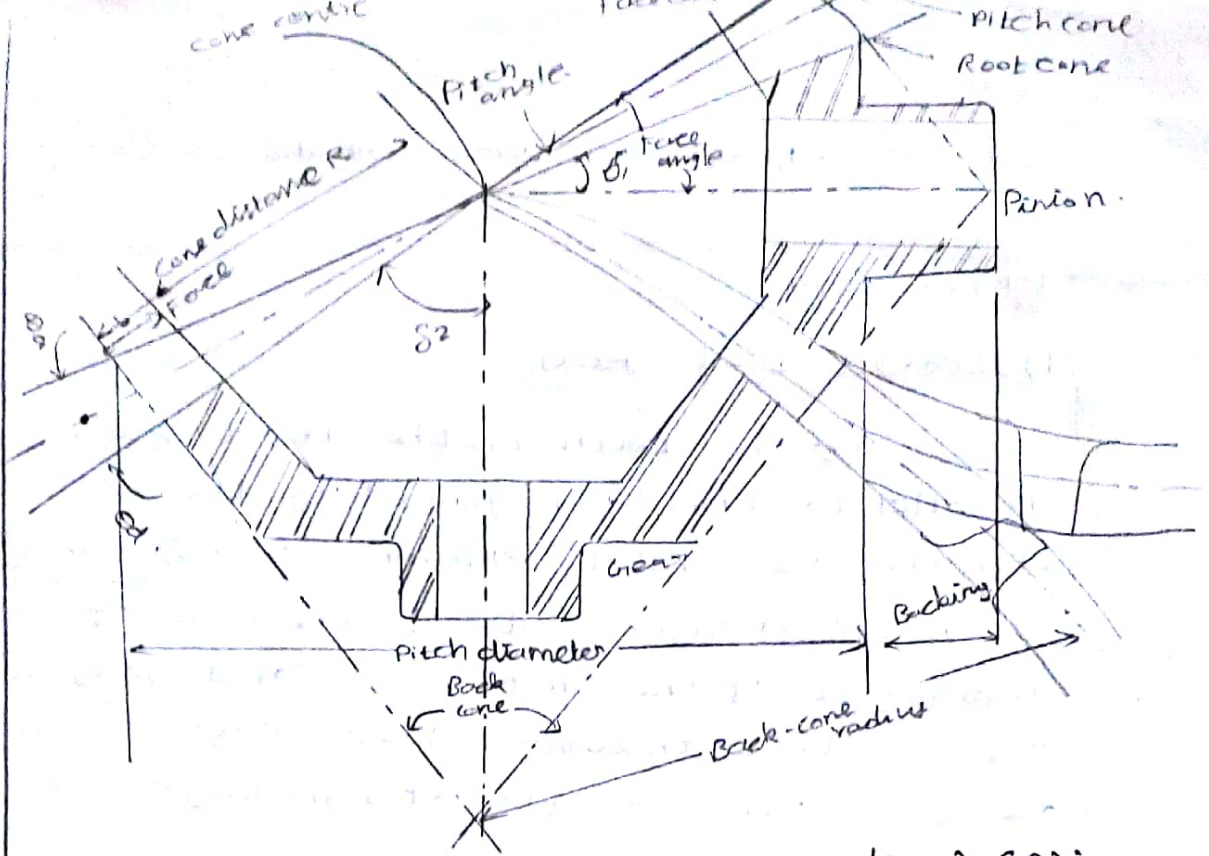 cone centre
Pitch cone
Root cone
Pitch
angle
Face
angle
δ1
Cone distance R
b
Face
Pinion.
δ2
θd.
Gear
Backing
Pitch diameter
Back
cone
Back-cone
radius